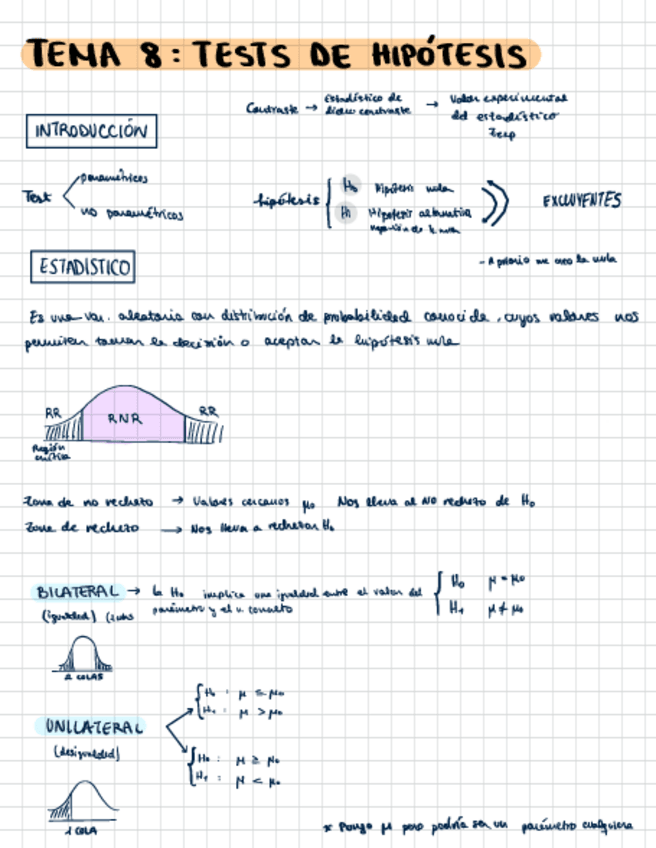 TEMA 8: TESTS DE HIPÓTESIS
Contraste → Estadístico de dicho contraste → Valor experimental del estadístico Zexp
INTRODUCCIÓN
Test
paramétricos
no paramétricos
hipótesis
H₀ Hipótesis nula
H₁ Hipótesis alternativa
negación de la nula
EXCLUYENTES
- A priorio me creo la nula
ESTADÍSTICO
Es una var. aleatoria con distribución de probabilidad conocida, cuyos valores nos
permiten tomar la decisión o aceptar la hipótesis nula
RR RNR RR
Región crítica
Zona de no rechazo → Valores cercanos μ₀ Nos lleva al NO rechazo de H₀
Zona de rechazo → Nos lleva a rechazar H₀
BILATERAL → la H₀ implica una igualdad entre el valor del
parámetro y el concreto
(igualdad)
H₀ μ = μ₀
H₁ μ ≠ μ₀
2 COLAS
UNILATERAL
(desigualdad)
H₀ : μ ≤ μ₀
H₁ : μ > μ₀
H₀ : μ ≥ μ₀
H₁ : μ < μ₀
1 COLA
* Pongo μ pero podría ser un parámetro cualquiera